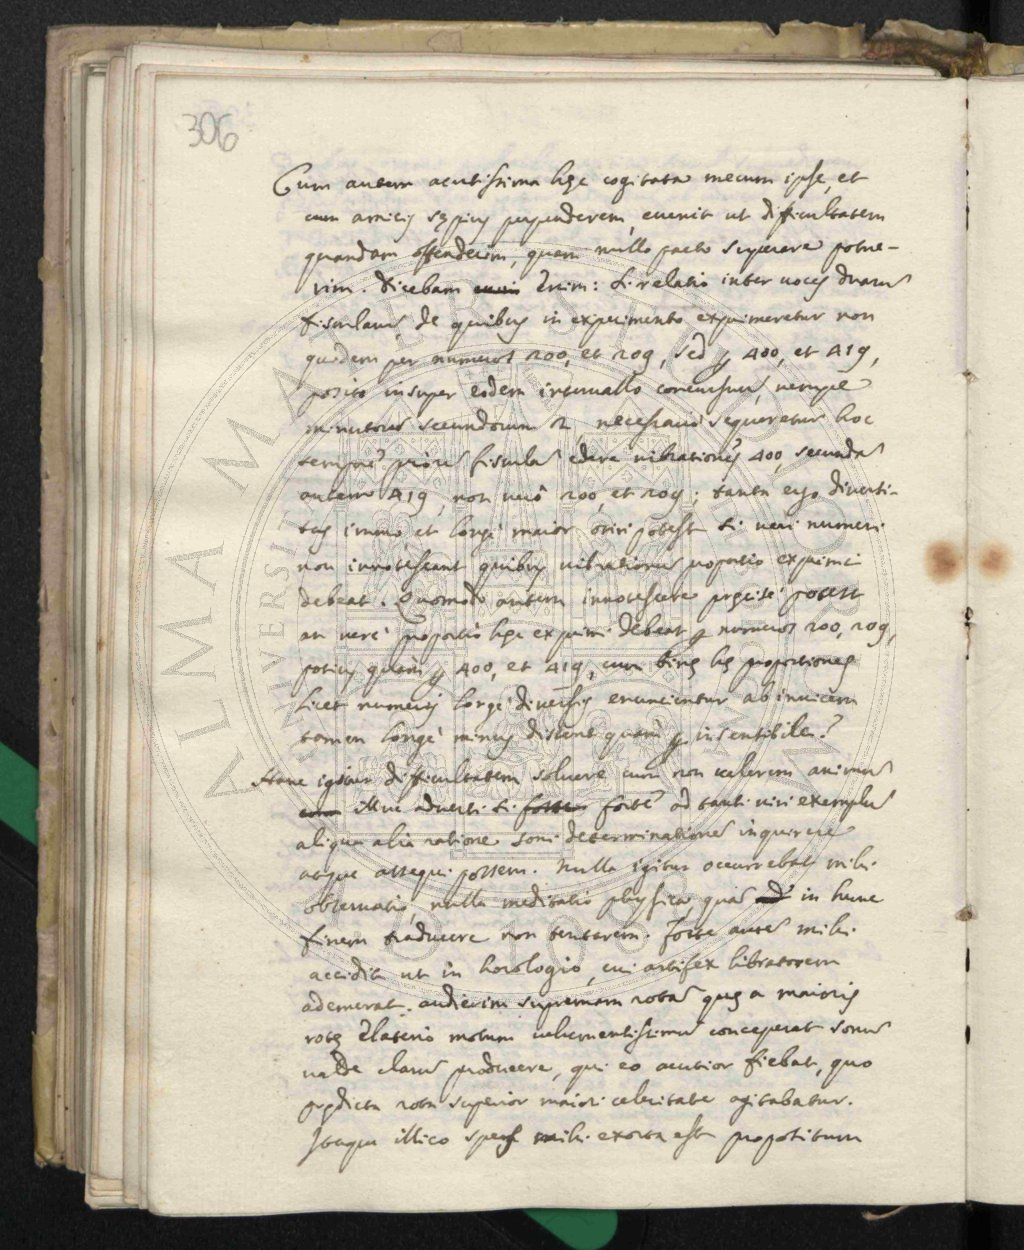 306
Cum autem acutissima hęc cogitata mecum ipse, et
cum amicis sępius perpenderem, evenit ut difficultatem
quandam offenderim, quam nullo pacto superare potue-
rim. Dicebam enim: si relatio inter voces duarū
fistularū de quibus in experimento exprimeretur non
quidem per numeros 200, et 209, sed p 400, et 419,
posito insuper eodem intervallo concursuū, nempe
minutorū secundorum, necessariò sequeretur hoc
tempore priorē fistulā edere vibrationes 400, secundā
autem 419, non verò 200, et 209: tanta ergo diversi-
tas immò, et longè maior oriri potest si veri numeri
non innotescant quibus vibrationū proportio exprimi
debeat. Quomodo autem innotescere pręcisè potest
an verè proportio hęc exprimi debeat p numeros 200, 209,
potius quàm p 400, et 419, cum binę hę proportiones
licet numeris longè diversis enuncientur ab invicem
tamen longè minus distent quàm p insensibile?
Hanc igitur difficultatem solvere cum non valerem animū
illuc adverti si fortè ad tanti viri exemplū
aliqua alia ratione soni determinationē inquirere
atque assequi possem. Nulla igitur occurrebat mihi
observatio, nulla meditatio physica, quā in hunc
finem traducere non tentarem. Forte autē mihi
accidit ut in horologio, cui artifex libratorem
ademerat, audierim supremam rotā quę a maioris
rotę elaterio motum vehementissimū conceperat sonū
valde clarū producere, qui eo acutior fiebat, quo
prędicta rota superior maiori celeritate agitabatur.
Itaque illico spes mihi exorta est propositum